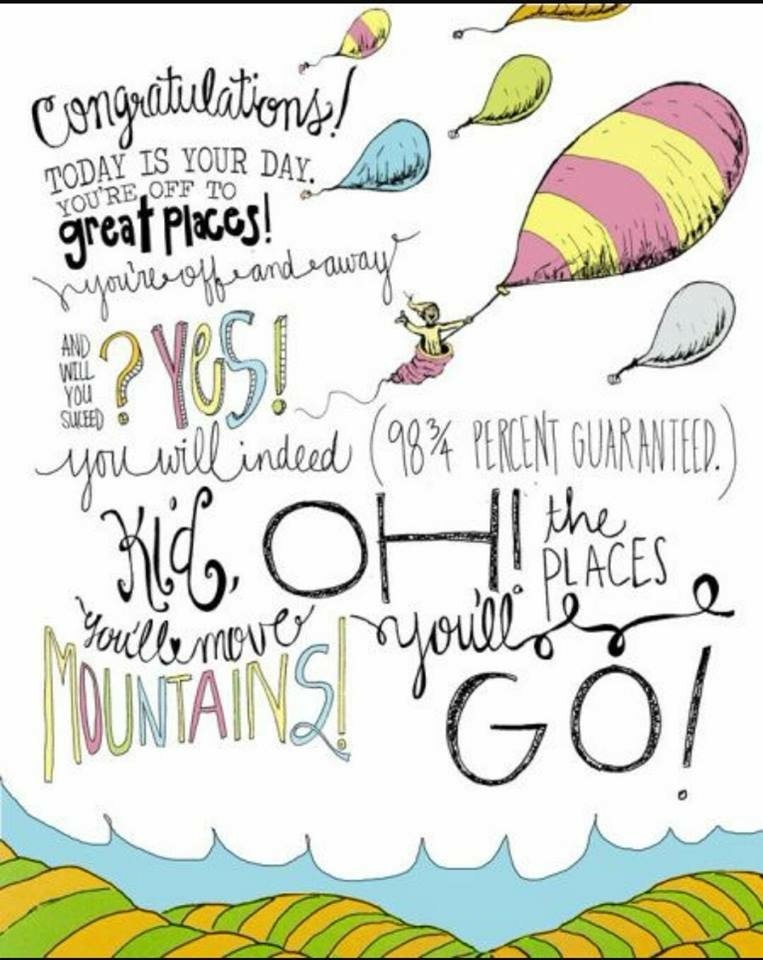 Congratulations!
TODAY IS YOUR DAY.
YOU'RE OFF TO
great places!
you're off and away
AND
WILL
YOU
SUCEED
? YES!
you will indeed (98 3/4 PERCENT GUARANTEED.)
Kid, OH! the
PLACES
you'll move you'll
MOUNTAINS!
GO!